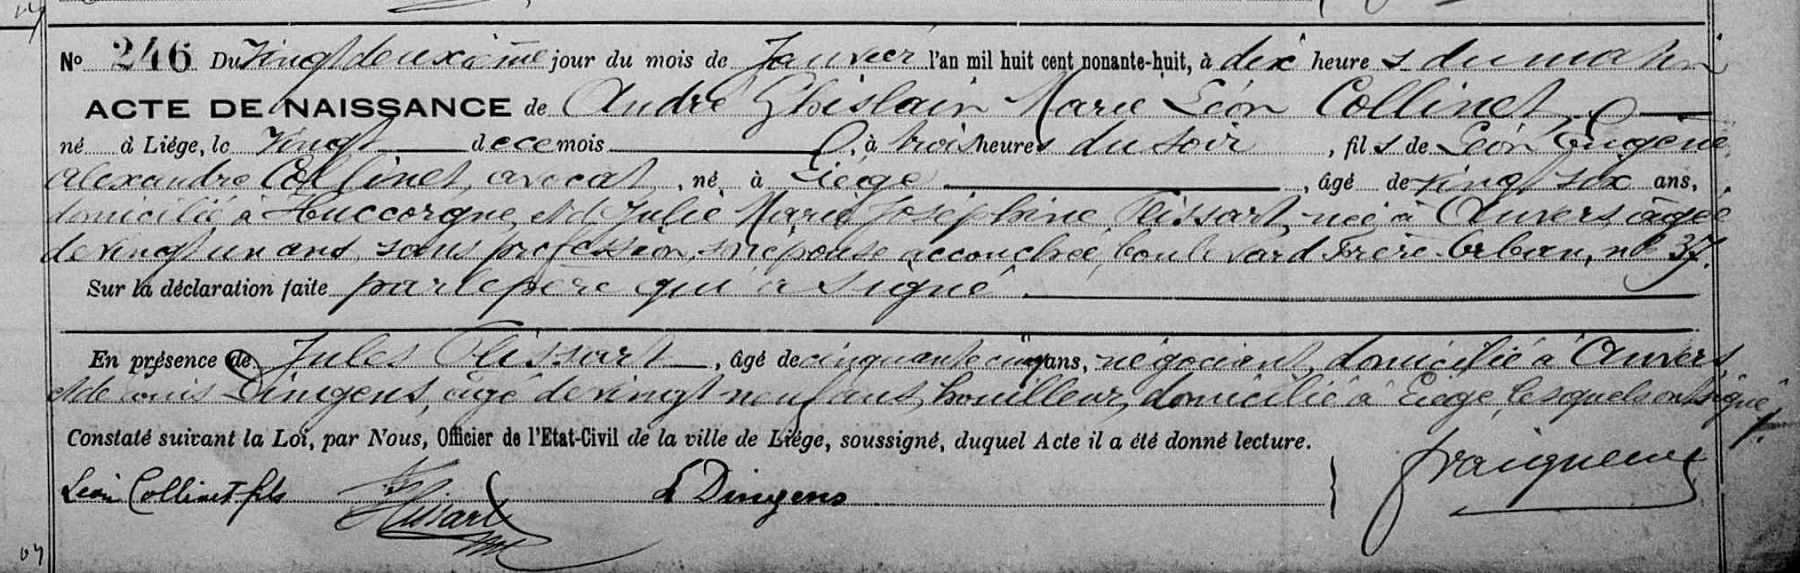 No 246 Du Vingt deuxième jour du mois de Janvier l'an mil huit cent nonante-huit, à dix heures du matin
ACTE DE NAISSANCE de André Ghislain Marie Léon Collinet,
né à Liége, le Vingt de ce mois, à trois heures du soir, fils de Léon Eugène
Alexandre Collinet, avocat, né à Liége, âgé de vingt six ans,
domicilié à Huccorgne, et de Julie Marie Joséphine Flissart, née à Anvers, âgée
de vingt un ans, sans profession, son épouse accouchée, boulevard Frère-Orban, n° 37.
Sur la déclaration faite par le père qui a signé
En présence de Jules Flissart, âgé de cinquante cinq ans, négociant, domicilié à Anvers,
et de Louis Dinigens, âgé de vingt neuf ans, houilleur, domicilié à Liége, lesquels ont signé.
Constaté suivant la Loi, par Nous, Officier de l'Etat-Civil de la ville de Liége, soussigné, duquel Acte il a été donné lecture.
Léon Collinet fils Flissart L Dinigens